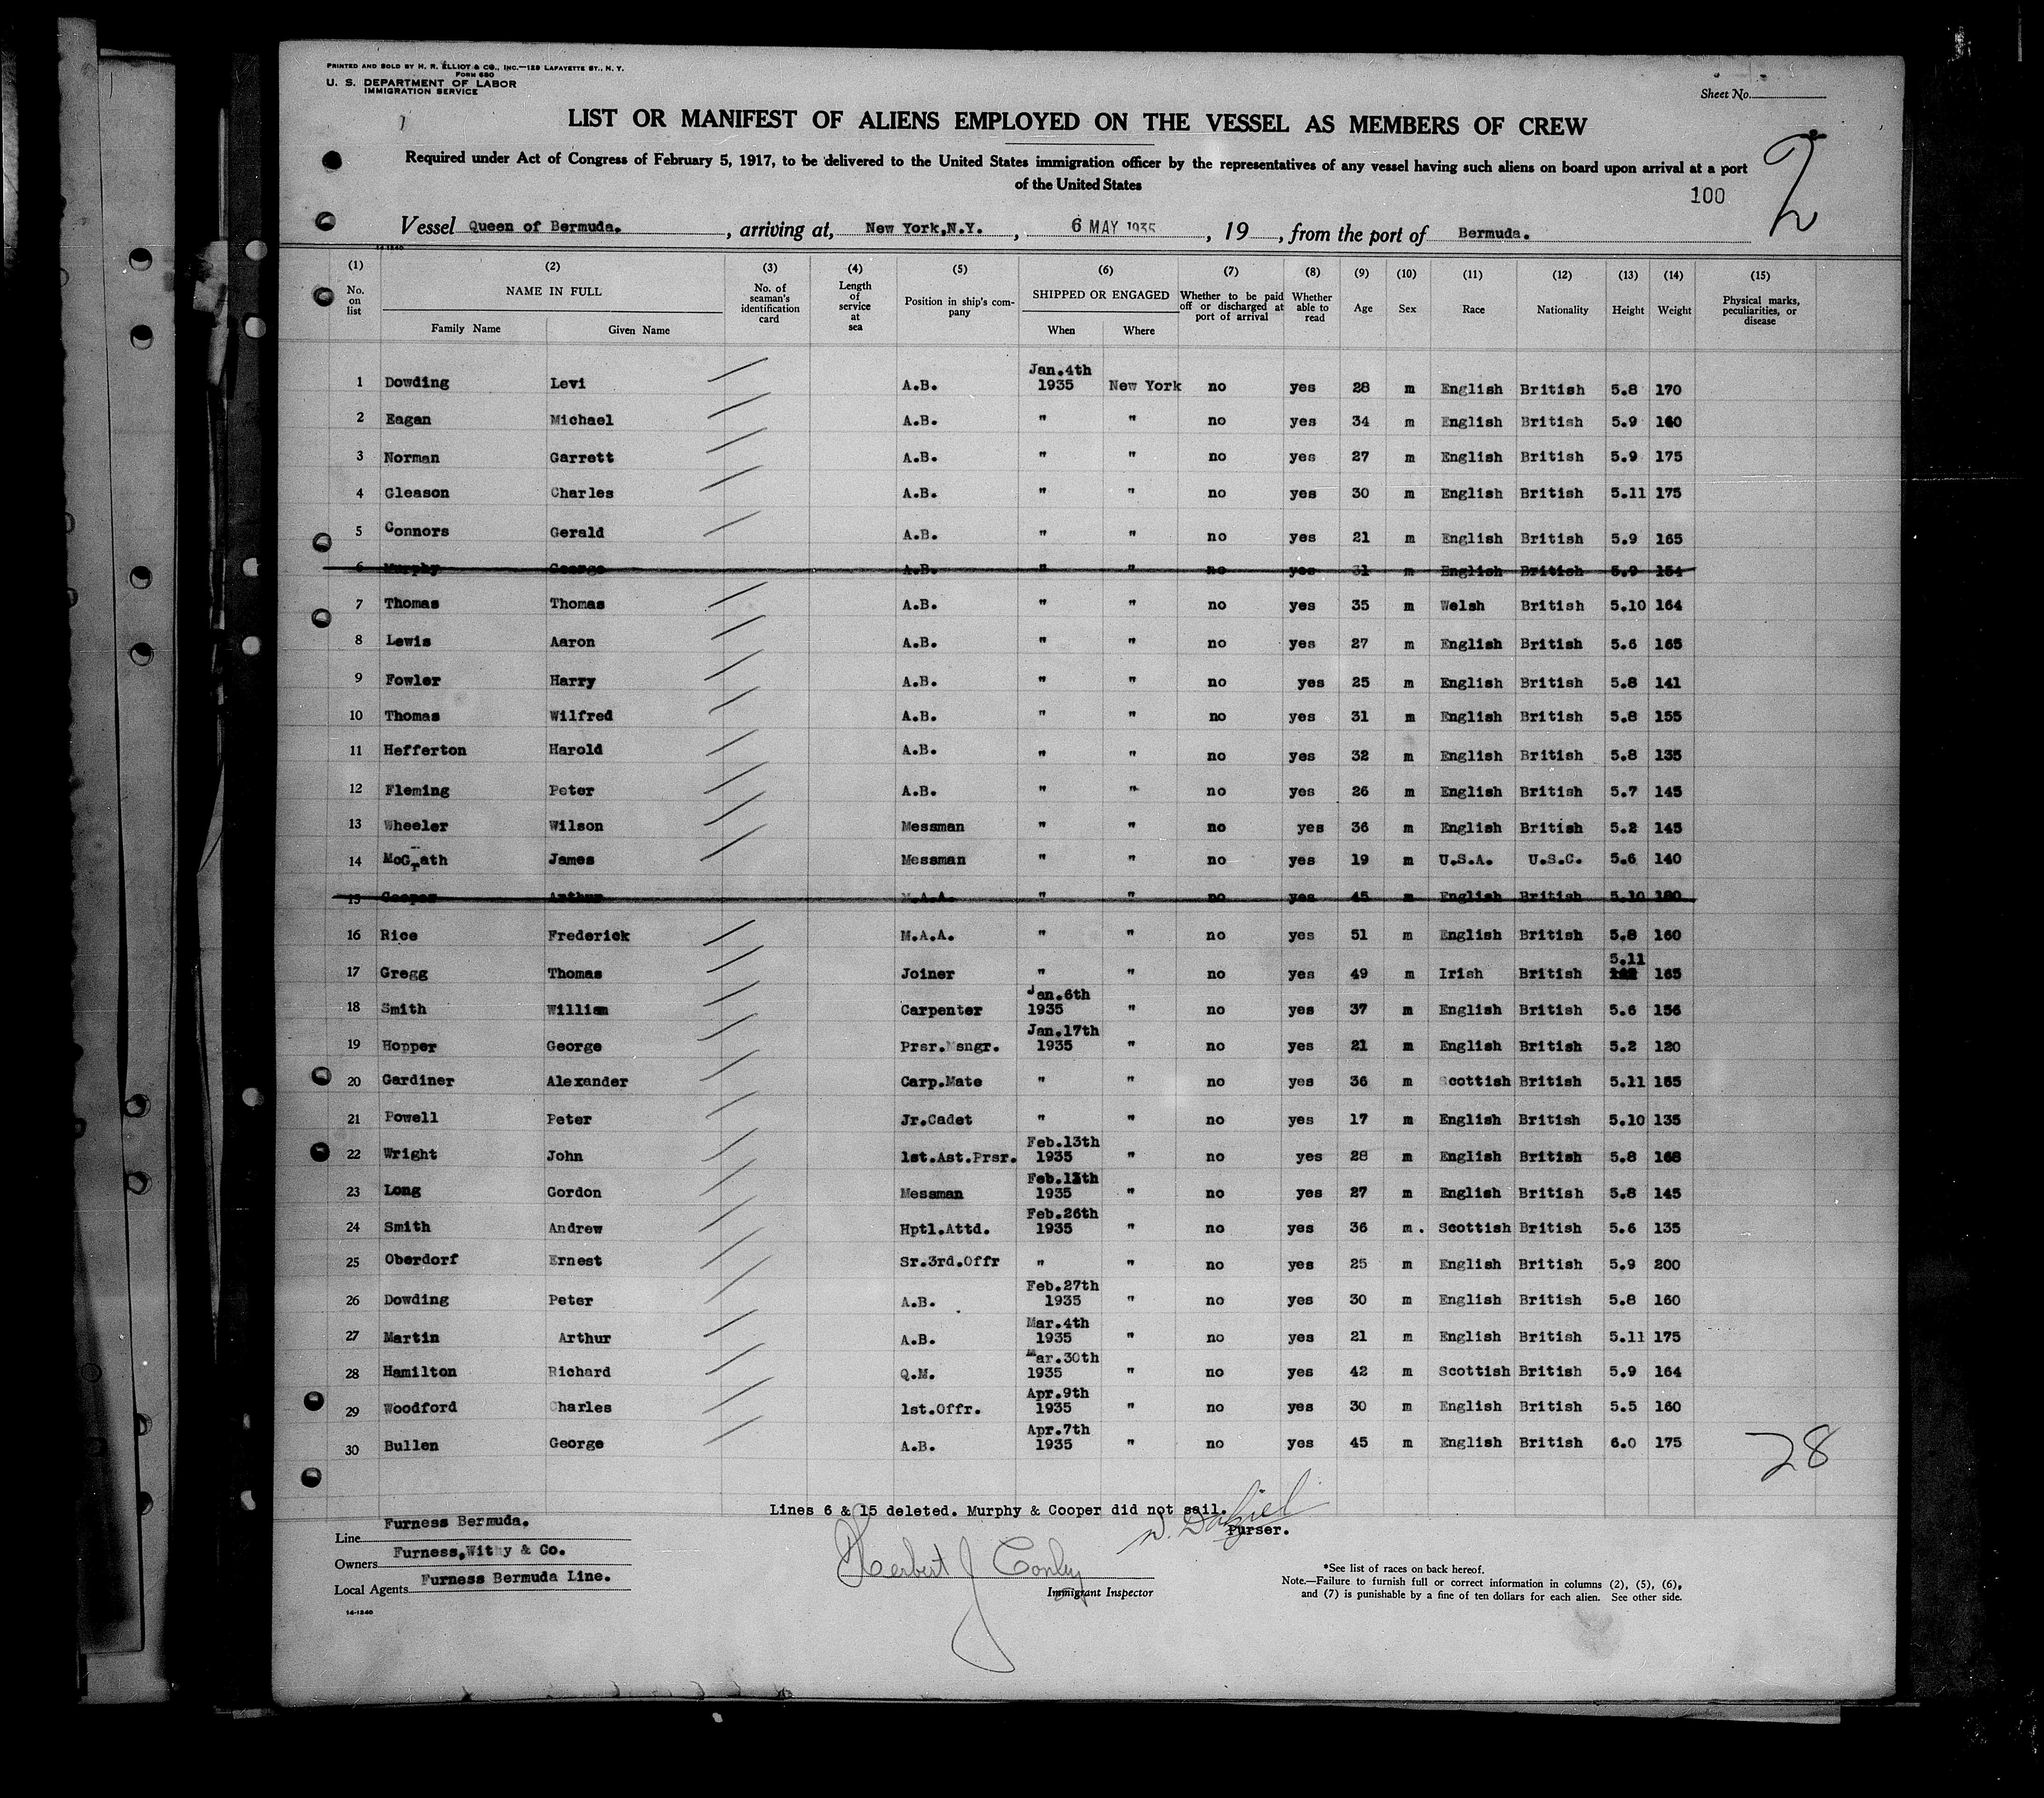 PRINTED AND SOLD BY H. R. ELLIOT & CO., INC.—129 LAFAYETTE ST., N. Y.
FORM 680
U. S. DEPARTMENT OF LABOR
IMMIGRATION SERVICE
Sheet No.
LIST OR MANIFEST OF ALIENS EMPLOYED ON THE VESSEL AS MEMBERS OF CREW
Required under Act of Congress of February 5, 1917, to be delivered to the United States immigration officer by the representatives of any vessel having such aliens on board upon arrival at a port
of the United States
2
100
Vessel Queen of Bermuda. , arriving at, New York,N.Y. , 6 MAY 1935 , 19 , from the port of Bermuda.
14-1240
(1) (2) (3) (4) (5) (6) (7) (8) (9) (10) (11) (12) (13) (14) (15)
No. on list NAME IN FULL Family Name Given Name No. of seaman's identification card Length of service at sea Position in ship's company SHIPPED OR ENGAGED When Where Whether to be paid off or discharged at port of arrival Whether able to read Age Sex Race Nationality Height Weight Physical marks, peculiarities, or disease
1 Dowding Levi A.B. Jan.4th 1935 New York no yes 28 m English British 5.8 170
2 Eagan Michael A.B. " " no yes 34 m English British 5.9 160
3 Norman Garrett A.B. " " no yes 27 m English British 5.9 175
4 Gleason Charles A.B. " " no yes 30 m English British 5.11 175
5 Connors Gerald A.B. " " no yes 21 m English British 5.9 165
6 Murphy George A.B. " " no yes 31 m English British 5.9 154
7 Thomas Thomas A.B. " " no yes 35 m Welsh British 5.10 164
8 Lewis Aaron A.B. " " no yes 27 m English British 5.6 165
9 Fowler Harry A.B. " " no yes 25 m English British 5.8 141
10 Thomas Wilfred A.B. " " no yes 31 m English British 5.8 155
11 Hefferton Harold A.B. " " no yes 32 m English British 5.8 135
12 Fleming Peter A.B. " " no yes 26 m English British 5.7 145
13 Wheeler Wilson Messman " " no yes 36 m English British 5.2 145
14 McGrath James Messman " " no yes 19 m U.S.A. U.S.C. 5.6 140
15 Cooper Arthur M.A.A. " " no yes 45 m English British 5.10 180
16 Rice Frederick M.A.A. " " no yes 51 m English British 5.8 160
17 Gregg Thomas Joiner " " no yes 49 m Irish British 5.11 165
18 Smith William Carpenter Jan.6th 1935 " no yes 37 m English British 5.6 156
19 Hopper George Prsr.Msngr. Jan.17th 1935 " no yes 21 m English British 5.2 120
20 Gardiner Alexander Carp.Mate " " no yes 36 m Scottish British 5.11 165
21 Powell Peter Jr.Cadet " " no yes 17 m English British 5.10 135
22 Wright John 1st.Ast.Prsr. Feb.13th 1935 " no yes 28 m English British 5.8 168
23 Long Gordon Messman Feb.13th 1935 " no yes 27 m English British 5.8 145
24 Smith Andrew Hptl.Attd. Feb.26th 1935 " no yes 36 m . Scottish British 5.6 135
25 Oberdorf Ernest Sr.3rd.Offr " " no yes 25 m English British 5.9 200
26 Dowding Peter A.B. Feb.27th 1935 " no yes 30 m English British 5.8 160
27 Martin Arthur A.B. Mar.4th 1935 " no yes 21 m English British 5.11 175
28 Hamilton Richard Q.M. Mar.30th 1935 " no yes 42 m Scottish British 5.9 164
29 Woodford Charles 1st.Offr. Apr.9th 1935 " no yes 30 m English British 5.5 160
30 Bullen George A.B. Apr.7th 1935 " no yes 45 m English British 6.0 175
28
Lines 6 & 15 deleted. Murphy & Cooper did not sail.
Purser.
Line Furness Bermuda.
Owners Furness,Withy & Co.
Local Agents Furness Bermuda Line.
Herbert J Conley
Immigrant Inspector
*See list of races on back hereof.
Note.—Failure to furnish full or correct information in columns (2), (5), (6),
and (7) is punishable by a fine of ten dollars for each alien. See other side.
14-1240